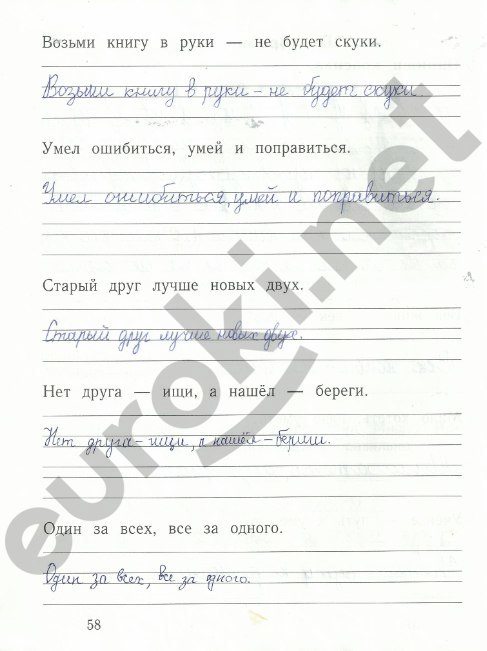 Возьми книгу в руки — не будет скуки.
Возьми книгу в руки – не будет скуки
Умел ошибиться, умей и поправиться.
Умел ошибиться, умей и поправиться.
Старый друг лучше новых двух.
Старый друг лучше новых двух.
Нет друга — ищи, а нашёл — береги.
Нет друга – ищи, а нашёл – береги.
Один за всех, все за одного.
Один за всех, все за одного.
58
euroki.net